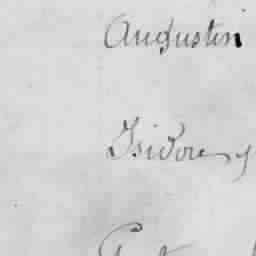 Augustin
Isidore y